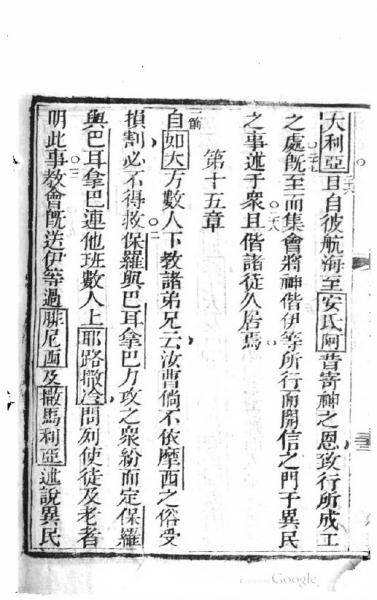 大利亞且自彼航海至安氐阿昔寄神之恩致行所成工
之處既至而集會將神偕伊等所行而開信之門于異民
之事述于衆且偕諸徒久居焉
第十五章
自如大方數人下教諸弟兄云汝曹倘不依摩西之俗受
損割必不得救保羅與巴耳拿巴力攻之衆紛而定保羅
與巴耳拿巴連他班數人上耶路撒冷問列使徒及老者
明此事教會既送伊等過腓尼西及撒馬利亞述說異民
Google